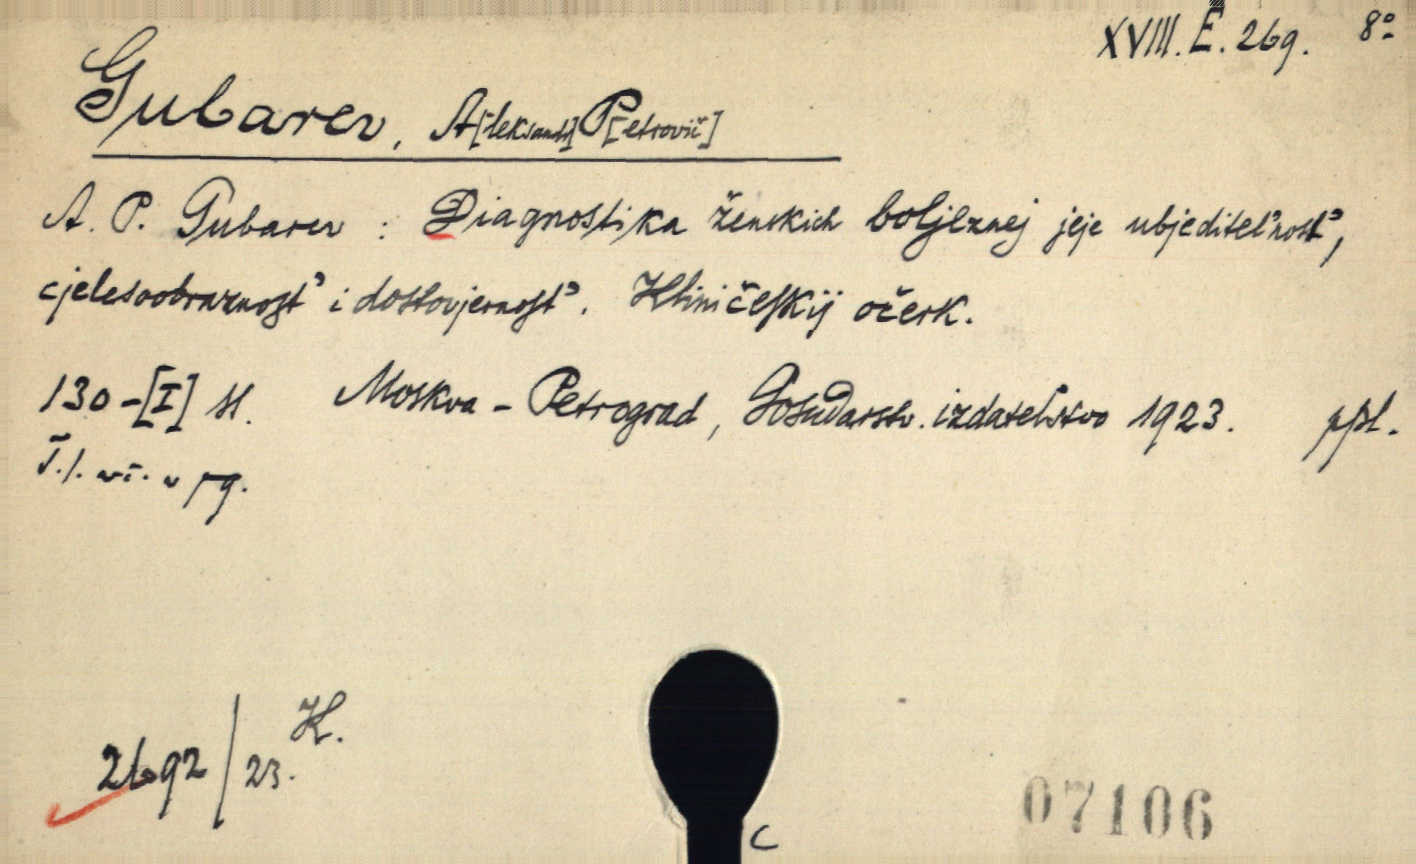 XVIII. E. 269. 8°
Gubarev, A[leksandr] P[etrovič]
A. P. Gubarev : Diagnostika ženskich boljeznej jeje ubjeditel'nost',
cjelesoobraznost' i dostovjernost'. Kliničeskij očerk.
130-[I] st. Moskva - Petrograd, Gosudarstv. izdatelstvo 1923. ppl.
2692/23. K.
07106
C